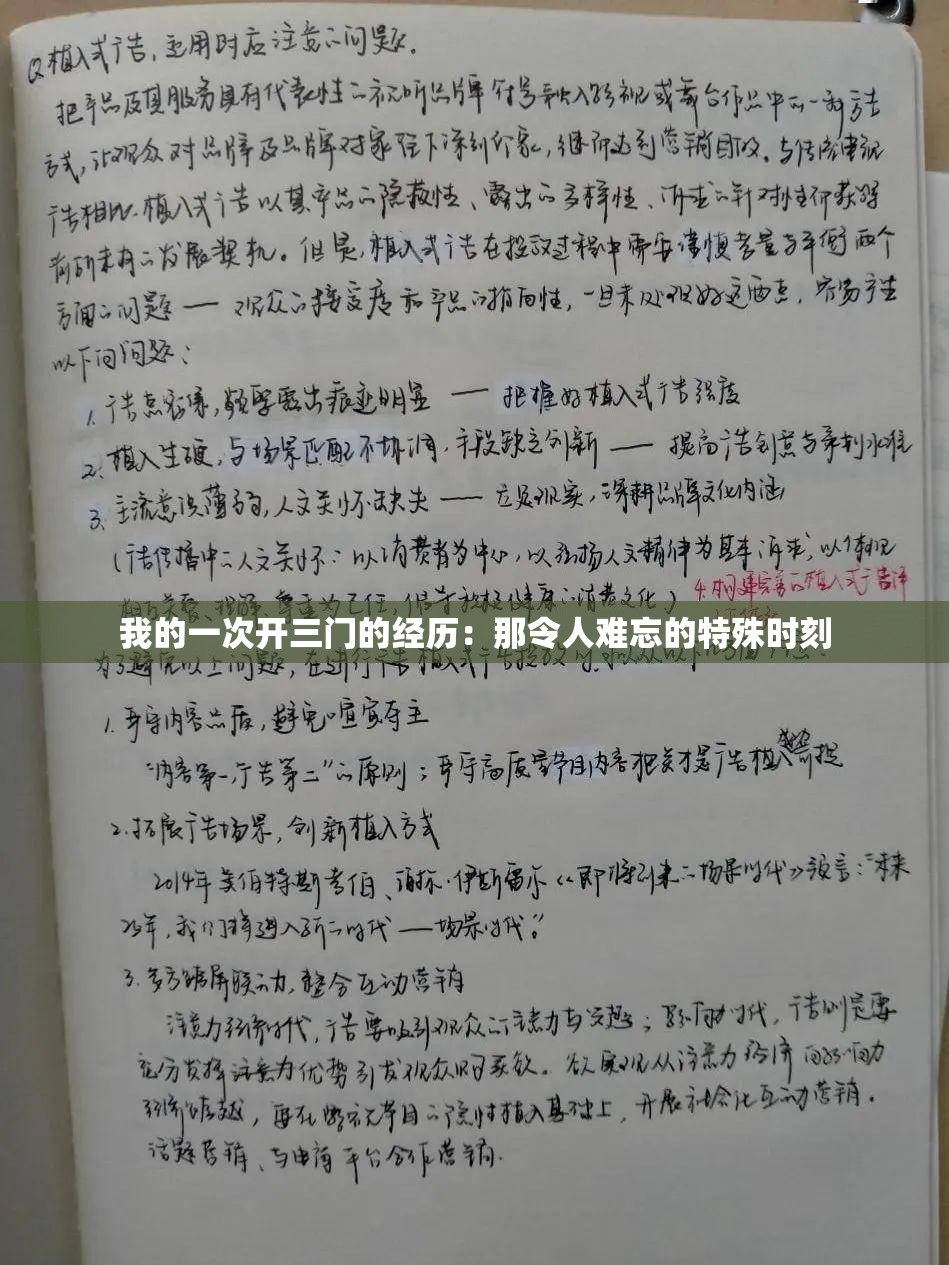 Q植入式广告,运用时应注意的问题.
把产品及其服务具有代表性的视听品牌符号融入影视或舞台作品中的一种广告
方式,让观众对品牌及品牌对象留下深刻印象,继而达到营销目的。与传统电视
广告相比,植入式广告以其产品的隐蔽性、露出的多样性、诉求的针对性而获得
前所未有的发展契机。但是,植入式广告在投放过程中需要谨慎考量与平衡两个
方面的问题——观众的接受度和产品的指向性,一旦未处理好这两点,容易产生
以下问题:
1. 广告点密集,频繁露出痕迹明显 —— 把握好植入式广告强度
2. 植入生硬,与场景匹配不协调,手段缺乏创新 —— 提高广告创意与策划水准
3. 主流意识薄弱,人文关怀缺失 —— 立足现实,深耕品牌文化内涵
(广告传播中的人文关怀:以消费者为中心,以弘扬人文精神为基本诉求,以体现
相互关爱、理解、尊重为己任,倡导积极健康的消费文化)
4.构建完善的植入式广告评
我的一次开三门的经历:那令人难忘的特殊时刻
为了避免以上问题,在进行广告植入式广告投放时,
1. 严守内容品质,避免喧宾夺主
"内容第一,广告第二"的原则;严守高质量节目内容把关才是广告植入前提
2. 拓展广告场景,创新植入方式
2014年美 罗伯特·斯考伯、谢尔·伊斯雷尔《即将到来的场景时代》预言:"未来
25年,我们将进入新的时代——场景时代。"
3. 多方跨屏联动,整合互动营销
注意力经济时代,广告要吸引观众的注意力与 ;影响力时代,广告则是要
充分发挥注意力优势引发观众购买欲。欲实现从注意力经济向影响力
经济 越,要在影视节目的隐性植入基础上,开展社会化互动营销。
话题营销、与电商平台合作营销.